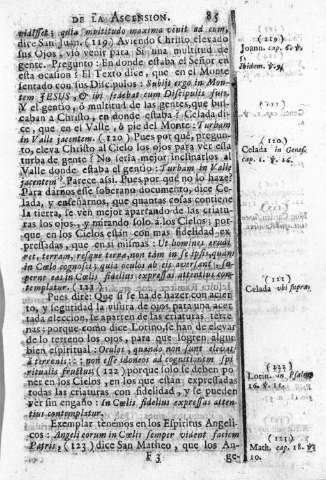 DE LA ASCENSION. 85
vidisset; quia multitudo maxima venit ad eum,
dice San Juan. (119) Aviendo Christo elevado
sus Ojos, vió venir para Si una multitud de
gente. Pregunto: En donde estaba el Señor en
esta ocasion? El Texto dice, que en el Monte
sentado con sus Discipulos: Subijt ergo in Mon-
tem JESUS, & ibi sedebat cum Discipulis suis.
Y el gentio, ó multitud de las gentes, que bus-
caban a Christo, en donde estaba? Celada di-
ce, que en el Valle, ó pie del Monte: Turbam
in Valle jacentem. (120) Pues por qué, pregun-
to, eleva Christo al Cielo los ojos para vér essa
turba de gente? No seria mejor inclinarlos al
Valle donde estaba el gentio: Turbam in Valle
jacentem? Parece assi. Pues por qué no lo haze?
Para darnos esse soberano documento, dice Ce-
lada, y enseñarnos, que quantas cosas contiene
la tierra, se ven mejor apartando de las criatu-
ras los ojos, y mirando solo á los Cielos; por-
que en los Cielos están con mas fidelidad ex-
pressadas, que en si mismas: Ut homines erudi-
ret, terram, resque terrenas non tàm in se ipsis, quàm
in Cœlo cognosci;
templatur. (121)
Pues dire: Que si se ha de hazer con acier-
to, y seguridad la visura de ojos para una acer-
tada eleccion, se aparten de las criaturas terre-
nas; porque como dice Lorino, se han de elevar
de lo terreno los ojos, para que logren algun
bien espiritual. Oculos, quando non sunt elevati
à terrenis; non esse idoneos ad cognitionem spi-
ritualis fructus (122) porque solo se deben po-
ner en los Cielos, en los que están expressadas
todas las criaturas con fidelidad, y se pueden
ver sin engaño: In Cœlis fidelius expressas atten-
tius contemplatur.
Exemplar tenemos en los Espiritus Angeli-
cos: Angeli eorum in Cœlis semper vident faciem
Patris, (123) dice San Matheo, que los An-
F 3 ge-
(119)
Joann. cap. 6. ℣.
5.
Ibidem. ℣.
(120)
Celada in Genes.
cap. 1. ℣. 16.
(121)
Celada ubi supra.
(122)
Lorin. in Psalm.
(123)
Math. cap. 18. ℣.
10.